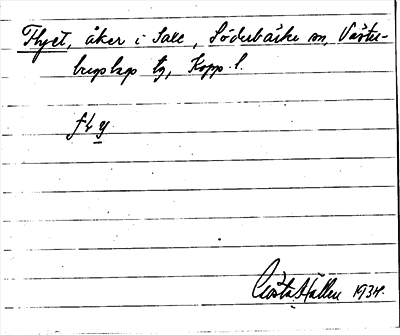 Flyet, åker i Saxe, Söderbärke sn, Väster-
bergslags tg, Kopp. l.
fly
Gösta Hallen 1934.